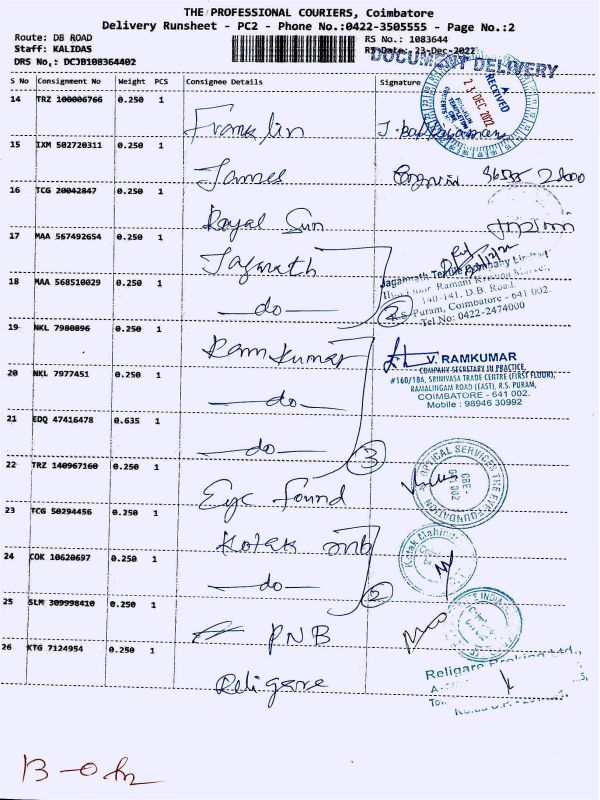 THE PROFESSIONAL COURIERS, Coimbatore
Delivery Runsheet - PC2 - Phone No.:0422-3505555 - Page No.:2
Route: DB ROAD
RS No.: 1083644
Staff: KALIDAS
RS Date: 23-Dec-2022
DRS No,: DCJB108364402
DOCUMENT DELIVERY
S No Consignment No Weight PCS Consignee Details Signature
RECEIVED
23 DEC 2022
14 TRZ 100006766 0.250 1
Franklin
15 IXM 502720311 0.250 1
James
16 TCG 20042847 0.250 1
Royal Sun
17 MAA 567492654 0.250 1
Jagnath
Jagannath Textile Company Limited
140-141, D.B. Road,
R.S. Puram, Coimbatore - 641 002.
Tel No: 0422-2474000
18 MAA 568510029 0.250 1
do
2
19 NKL 7980896 0.250 1
Ramkumar
V. RAMKUMAR
COMPANY SECRETARY IN PRACTICE,
#160/18A, SRINIVASA TRADE CENTRE (FIRST FLOOR),
RAMALINGAM ROAD (EAST), R.S. PURAM,
COIMBATORE - 641 002.
Mobile : 98946 30992
20 NKL 7977451 0.250 1
do
21 EDQ 47416478 0.635 1
do
3
22 TRZ 140967160 0.250 1
Eye found
OPTICAL SERVICES THE EYE FOUNDATION
CBE-
641 002
23 TCG 50294456 0.250 1
Kotak mnb
Kotak Mahindra
24 COK 10620697 0.250 1
do
2
25 SLM 309998410 0.250 1
PNB
26 KTG 7124954 0.250 1
Religare
Religare Broking Ltd.,